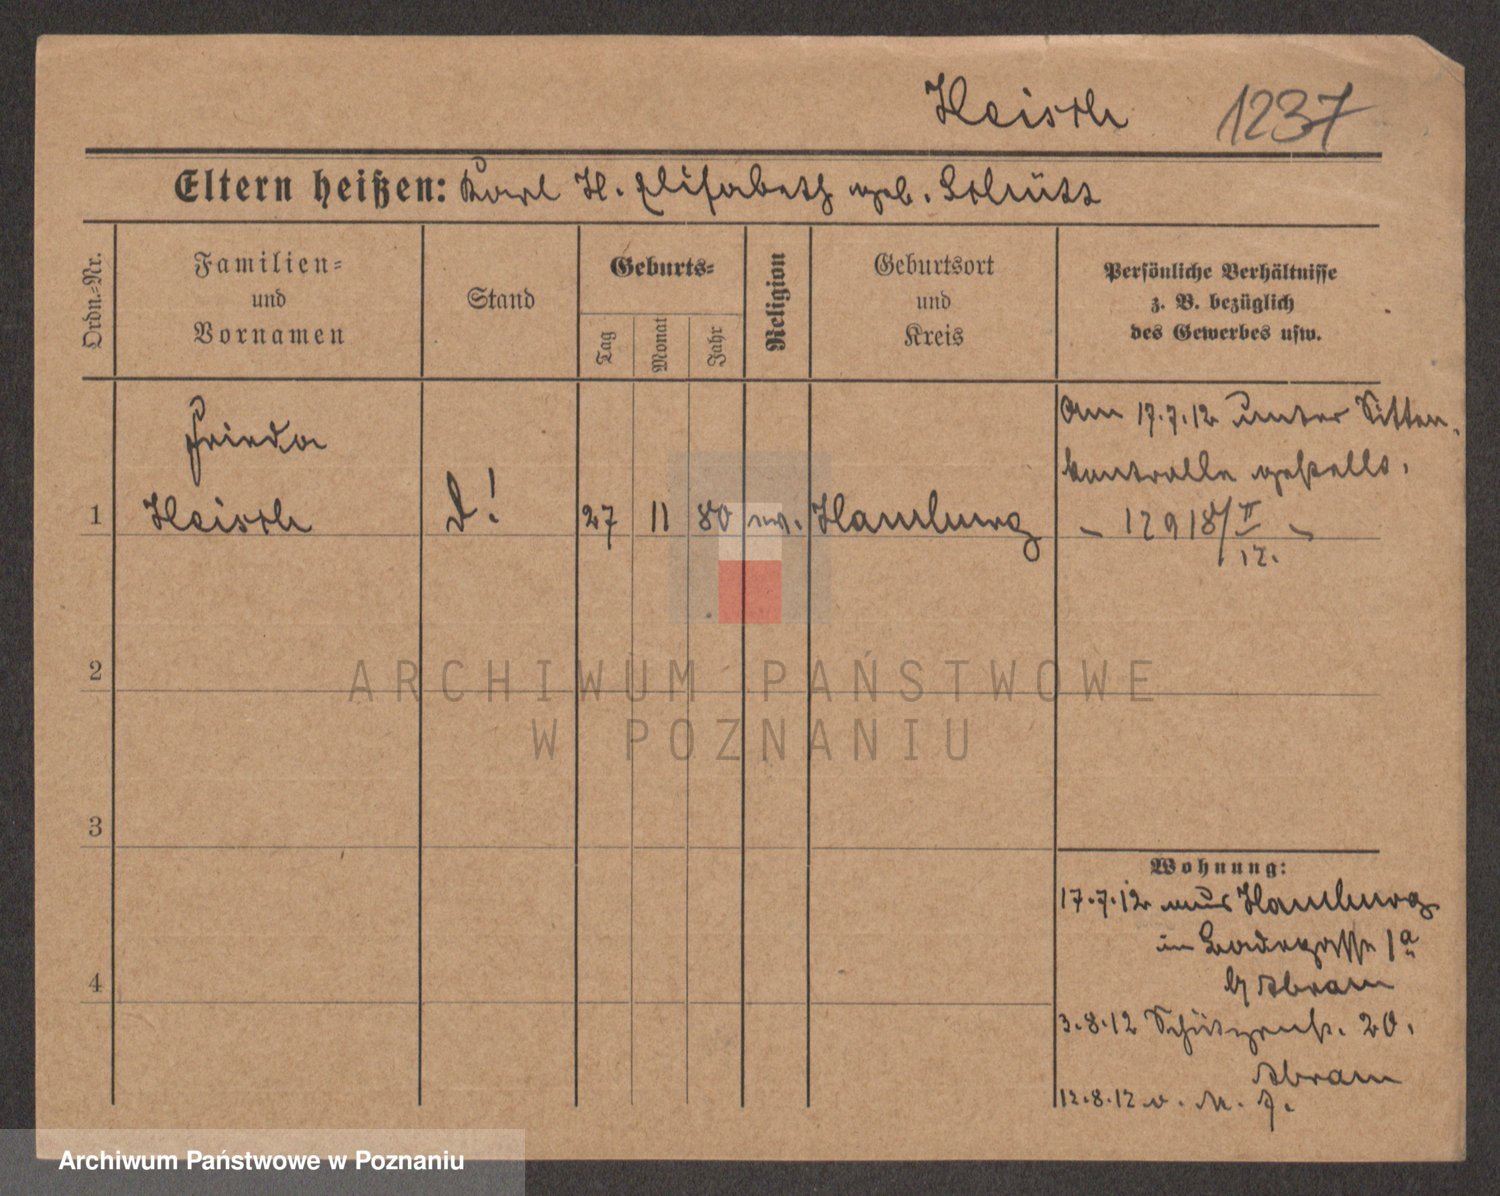 Heisch 1237
Eltern heißen: Karl H. Elisabeth geb. Schütt
Ordn.=Nr.
Familien=
und
Vornamen
Stand
Geburts=
Tag
Monat
Jahr
Religion
Geburtsort
und
Kreis
Persönliche Verhältnisse
z. B. bezüglich
des Gewerbes usw.
Frieda
1 Heisch 27 11 80 Hamburg
Am 17.7.12 unter Sitten-
kontrolle gestellt.
12918/II
12.
2
3
4
Wohnung:
17.7.12 aus Hamburg
in Badegasse 1a
b/ Abram
3.8.12 Schützenstr. 20.
Abram
12.8.12
ARCHIWUM PAŃSTWOWE
W POZNANIU
Archiwum Państwowe w Poznaniu